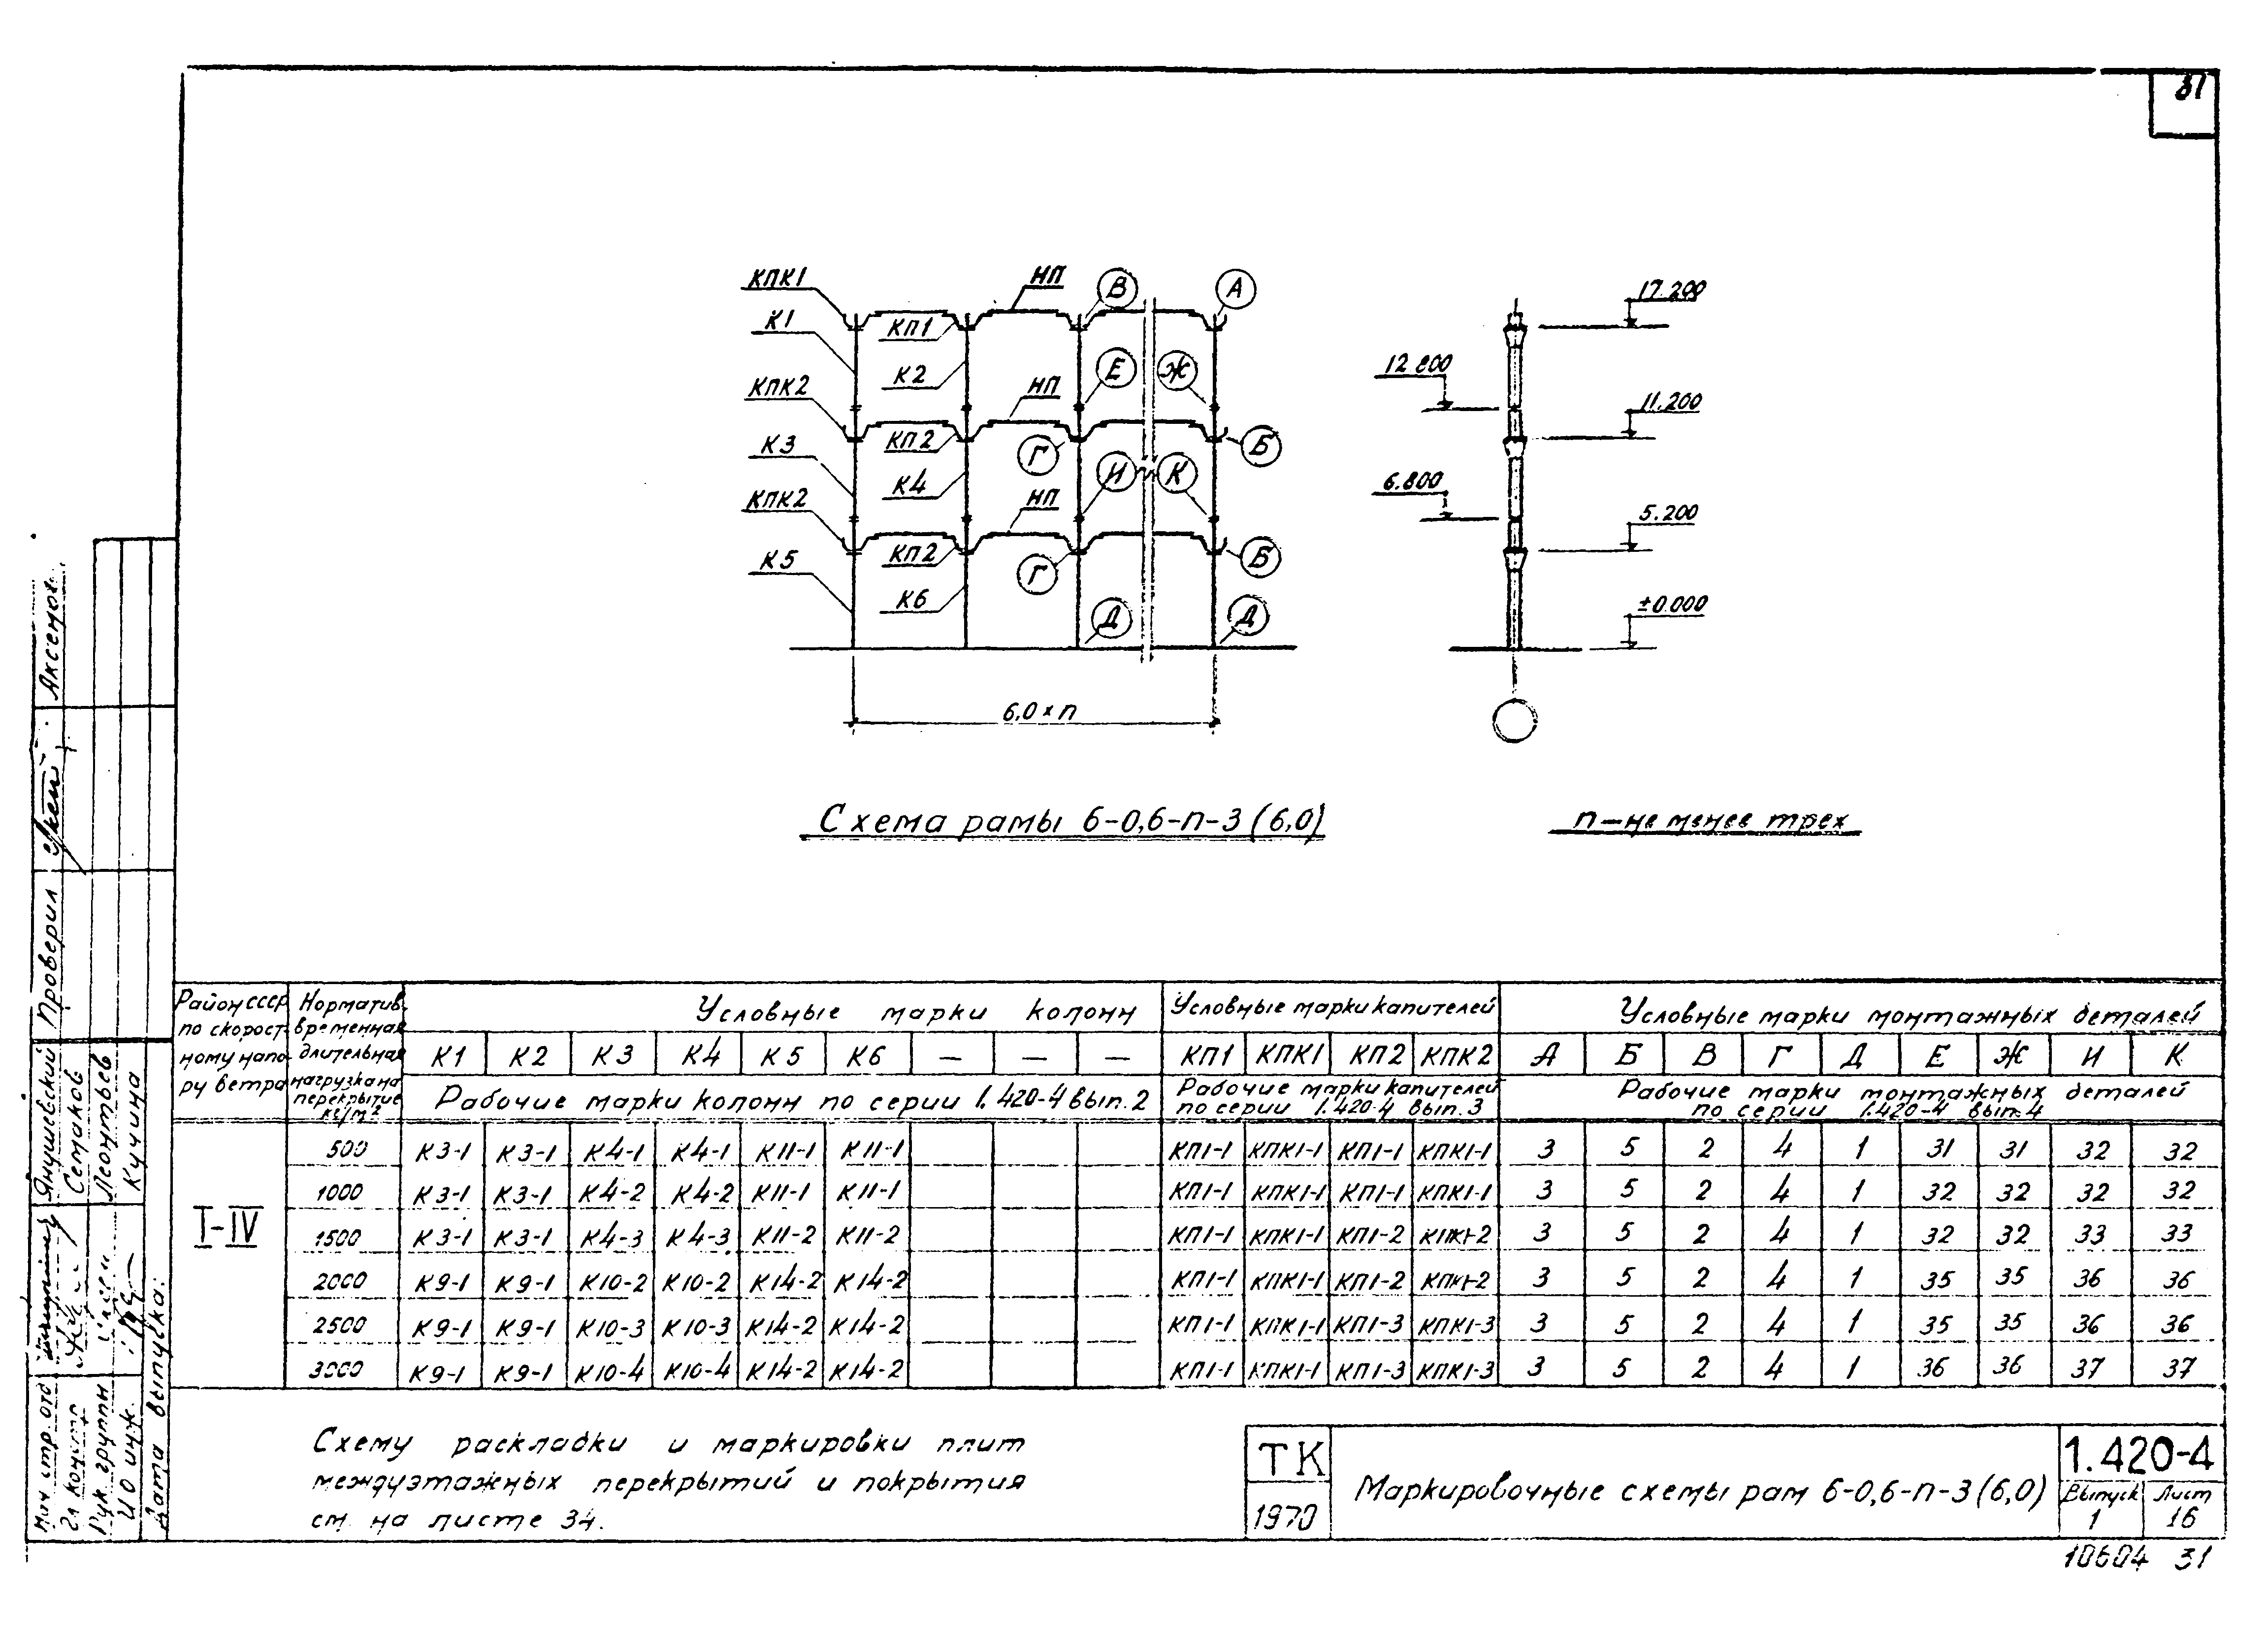 31
КПК1
К1
КПК2
К3
КПК2
К5
КП1
К2
КП2
К4
КП2
К6
НП
НП
НП
В
А
Е
Ж
Г
Б
И
К
Г
Б
Д
Д
6,0 × п
12.800
6.800
17.200
11.200
5.200
±0.000
Схема рамы 6-0,6-п-3 (6,0)
п — не менее трех
Район СССР по скоростному напору ветра
Норматив. временная длительная нагрузка на перекрытие кг/м²
Условные марки колонн
Условные марки капителей
Условные марки монтажных деталей
К1 К2 К3 К4 К5 К6 — — — КП1 КПК1 КП2 КПК2 А Б В Г Д Е Ж И К
Рабочие марки колонн по серии 1.420-4 вып. 2
Рабочие марки капителей по серии 1.420-4 вып. 3
Рабочие марки монтажных деталей по серии 1.420-4 вып. 4
I-IV
500 К3-1 К3-1 К4-1 К4-1 К11-1 К11-1 КП1-1 КПК1-1 КП1-1 КПК1-1 3 5 2 4 1 31 31 32 32
1000 К3-1 К3-1 К4-2 К4-2 К11-1 К11-1 КП1-1 КПК1-1 КП1-1 КПК1-1 3 5 2 4 1 32 32 32 32
1500 К3-1 К3-1 К4-3 К4-3 К11-2 К11-2 КП1-1 КПК1-1 КП1-2 КПК1-2 3 5 2 4 1 32 32 33 33
2000 К9-1 К9-1 К10-2 К10-2 К14-2 К14-2 КП1-1 КПК1-1 КП1-2 КПК1-2 3 5 2 4 1 35 35 36 36
2500 К9-1 К9-1 К10-3 К10-3 К14-2 К14-2 КП1-1 КПК1-1 КП1-3 КПК1-3 3 5 2 4 1 35 35 36 36
3000 К9-1 К9-1 К10-4 К10-4 К14-2 К14-2 КП1-1 КПК1-1 КП1-3 КПК1-3 3 5 2 4 1 36 36 37 37
Схему раскладки и маркировки плит
междуэтажных перекрытий и покрытия
см. на листе 34.
ТК
1970
Маркировочные схемы рам 6-0,6-п-3 (6,0)
1.420-4
Выпуск 1
Лист 16
10604 31
Нач. стр. отд. Янушевский
Гл. констр. Семаков
Рук. группы Леонтьев
И О инж. Кучина
Дата выпуска:
Проверил Аксенов